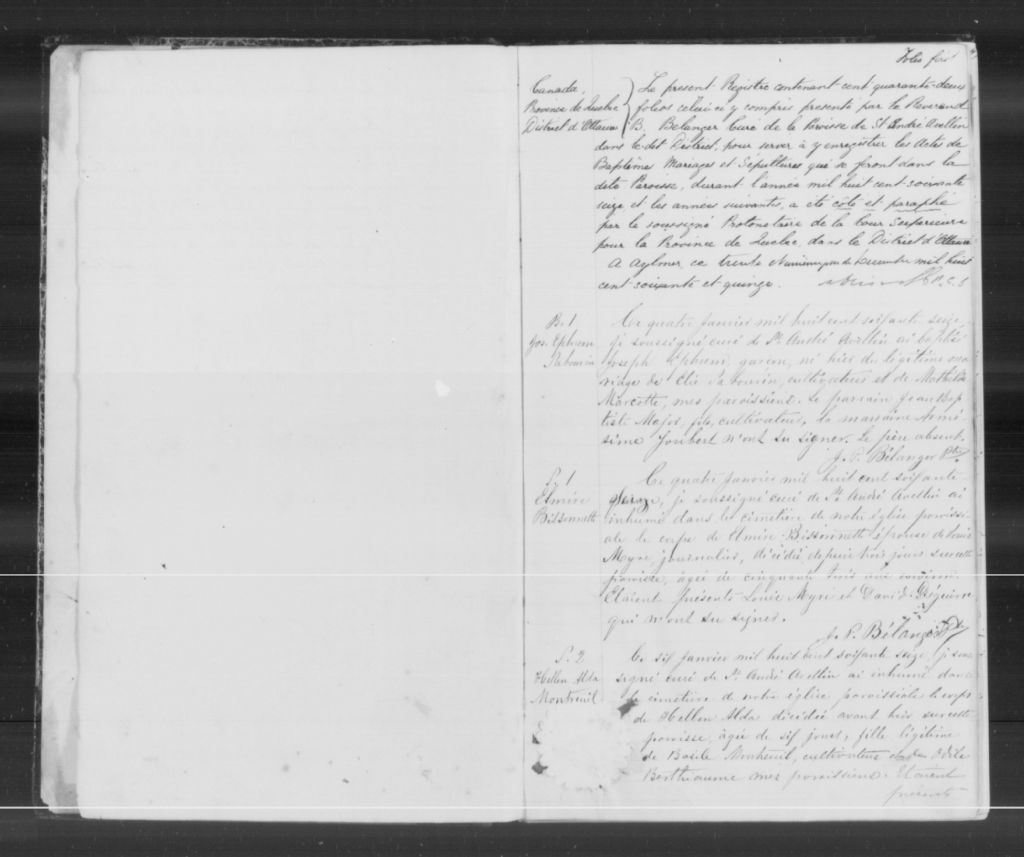 Folio first
Canada,
Province de Quebec
District d'Ottawa
Le present Registre contenant cent quarante-deux
folios celui ci y compris presenté par le Reverend
B. Belanger Curé de la Paroisse de St André Avellin
dans ledit District, pour servir à y enregistrer les Actes de
Baptêmes Mariages et Sépultures qui se feront dans la
dite Paroisse, durant l'année mil huit cent-soixante
seize, et les années suivantes, a eté coté et paraphé
par le soussigné Protonotaire de la Cour Supérieure
pour la Province de Quebec, dans le District d'Ottawa
A Aylmer ce trente de Decembre mil huit
cent-soixante et quinze. P. C. S
B. 1
Jos. Ephrem
Sabourin
Ce quatre Janvier mil huit cent soixante seize,
je soussigné curé de St. André Avellin ai baptisé
Joseph Ephrem, garçon, né hier du légitime ma
riage de Elie Sabourin, cultivateur et de Mathilde
Marcotte, mes paroissiens. Le parrain Jean Bap
tiste Major, fils, cultivateur, la marraine
Joubert n'ont su signer. Le père absent.
J. P. Bélanger Ptre
S. 1
Elmire
Bissonnett
Ce quatre Janvier mil huit cent soixante
seize, je soussigné curé de St. André Avellin ai
inhumé dans le cimetière de notre église paroissi
ale le corps de Elmire Bissonnett épouse de Louis
Myre, journalier, décédée depuis trois jours sur cette
paroisse, agée de cinquante trois ans environ.
Etaient présents Louis Myre et David Séguin
qui n'ont su signer.
J. P. Bélanger Ptre
S. 2
Hellen Alda
Montreuil
Ce six Janvier mil huit cent soixante seize, je sous
signé curé de St. André Avellin ai inhumé dans
le cimetière de notre église paroissiale le corps
de Hellen Alda décédée avant hier sur cette
paroisse, agée de six jours, fille légitime
de Basile Montreuil, cultivateur et de Odile
Berthiaume mes paroissiens. Etaient
présents